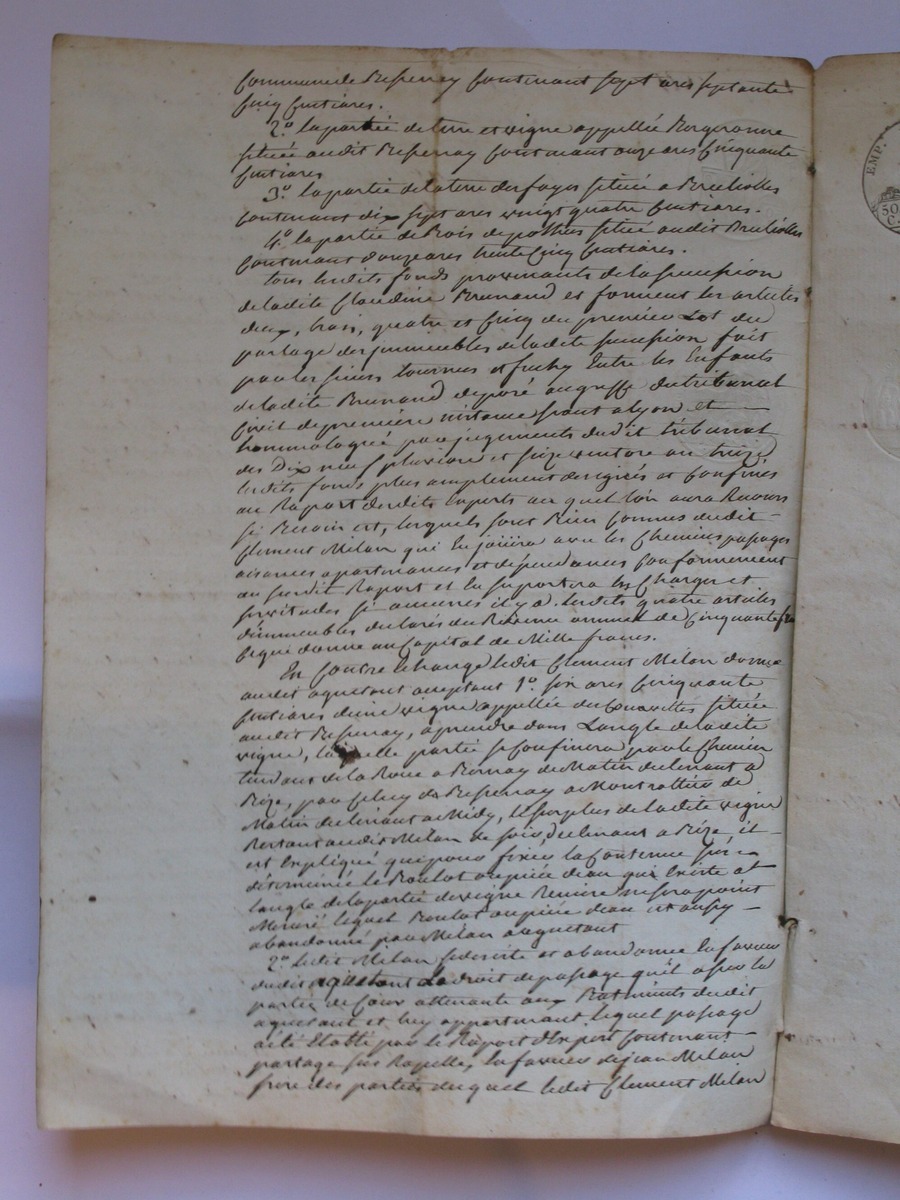 Commune de Bessenay Contenant Sept ares septante
Cinq Centiares.
2.o la partie de terre et vigne appellée Bergeronne
située audit Bessenay Contenant onze ares Cinquante
Centiares
3.o la partie de la terre des fayes située a Brulliolles
Contenant dix sept ares vingt quatre Centiares.
4.o la partie de Bois de située audit Brulliolles
Contenant douze ares trente Cinq Centiares.
tous lesdits fonds provenants de la succession
de ladite Claudine Brunand et forment les articles
deux, trois, quatre et Cinq du premier Lot du
partage des immeubles de ladite succession fait
par les sieurs tournus et Entre les Enfants
de ladite Brunand deposé au greffe du tribunal
Civil de première instance séant a lyon et
hommologuée par jugements dudit tribunal
des Dix neuf pluviose et seize ventose an treize
lesdits fonds plus amplement designés et Confinés
au Raport desdits Experts au quel l'on aura Recours
si Besoin est, lesquels sont Bien Connus dudit
Clement Milan qui En joüira avec les Chemins passages
aisances apartenances et dépendances Conformement
au susdit Raport et En suportera les Charges et
servitudes si aucunes il y a. lesdits quatre articles
d'immeubles declarés du Revenu annuel de Cinquante fr
Ce qui donne au Capital de Mille francs.
En Contre Echange ledit Clement Milan donne
audit aquetant acceptant 1.o six ares Cinquante
Centiares d'une vigne appellée des située
audit Bessenay, a prendre dans L'angle de ladite
vigne, laquelle partie se Confinera par le Chemin
tendant de la Roue a Bernay de Matin declinant a
Bize, par Celuy de Bessenay a Montrottier de
Matin declinant a Midy, le surplus de ladite vigne
Restant audit Milan de soir, declinant a Bize, il
est Expliqué que pour fixer la Contenue sus
déterminée le Boulot ou pièce d'eau qui Existe a
l'angle de la partie de vigne Remise ne sera point
Mesuré lequel Boulot ou pièce d'eau est aussy
abandonné par Milan a aquetant
2.o ledit Milan se désiste et abandonne En faveur
dudit aquetant Le droit de passage qu'il a sur la
partie de Cour attenante aux Batiments dudit
aquetant et luy appartenant lequel passage
a été Etabli par le Raport d'Expert Contenant
partage sus Rapellé, En faveur de jean Milan
frere des parties duquel ledit Clement Milan
EMP.
50
C.